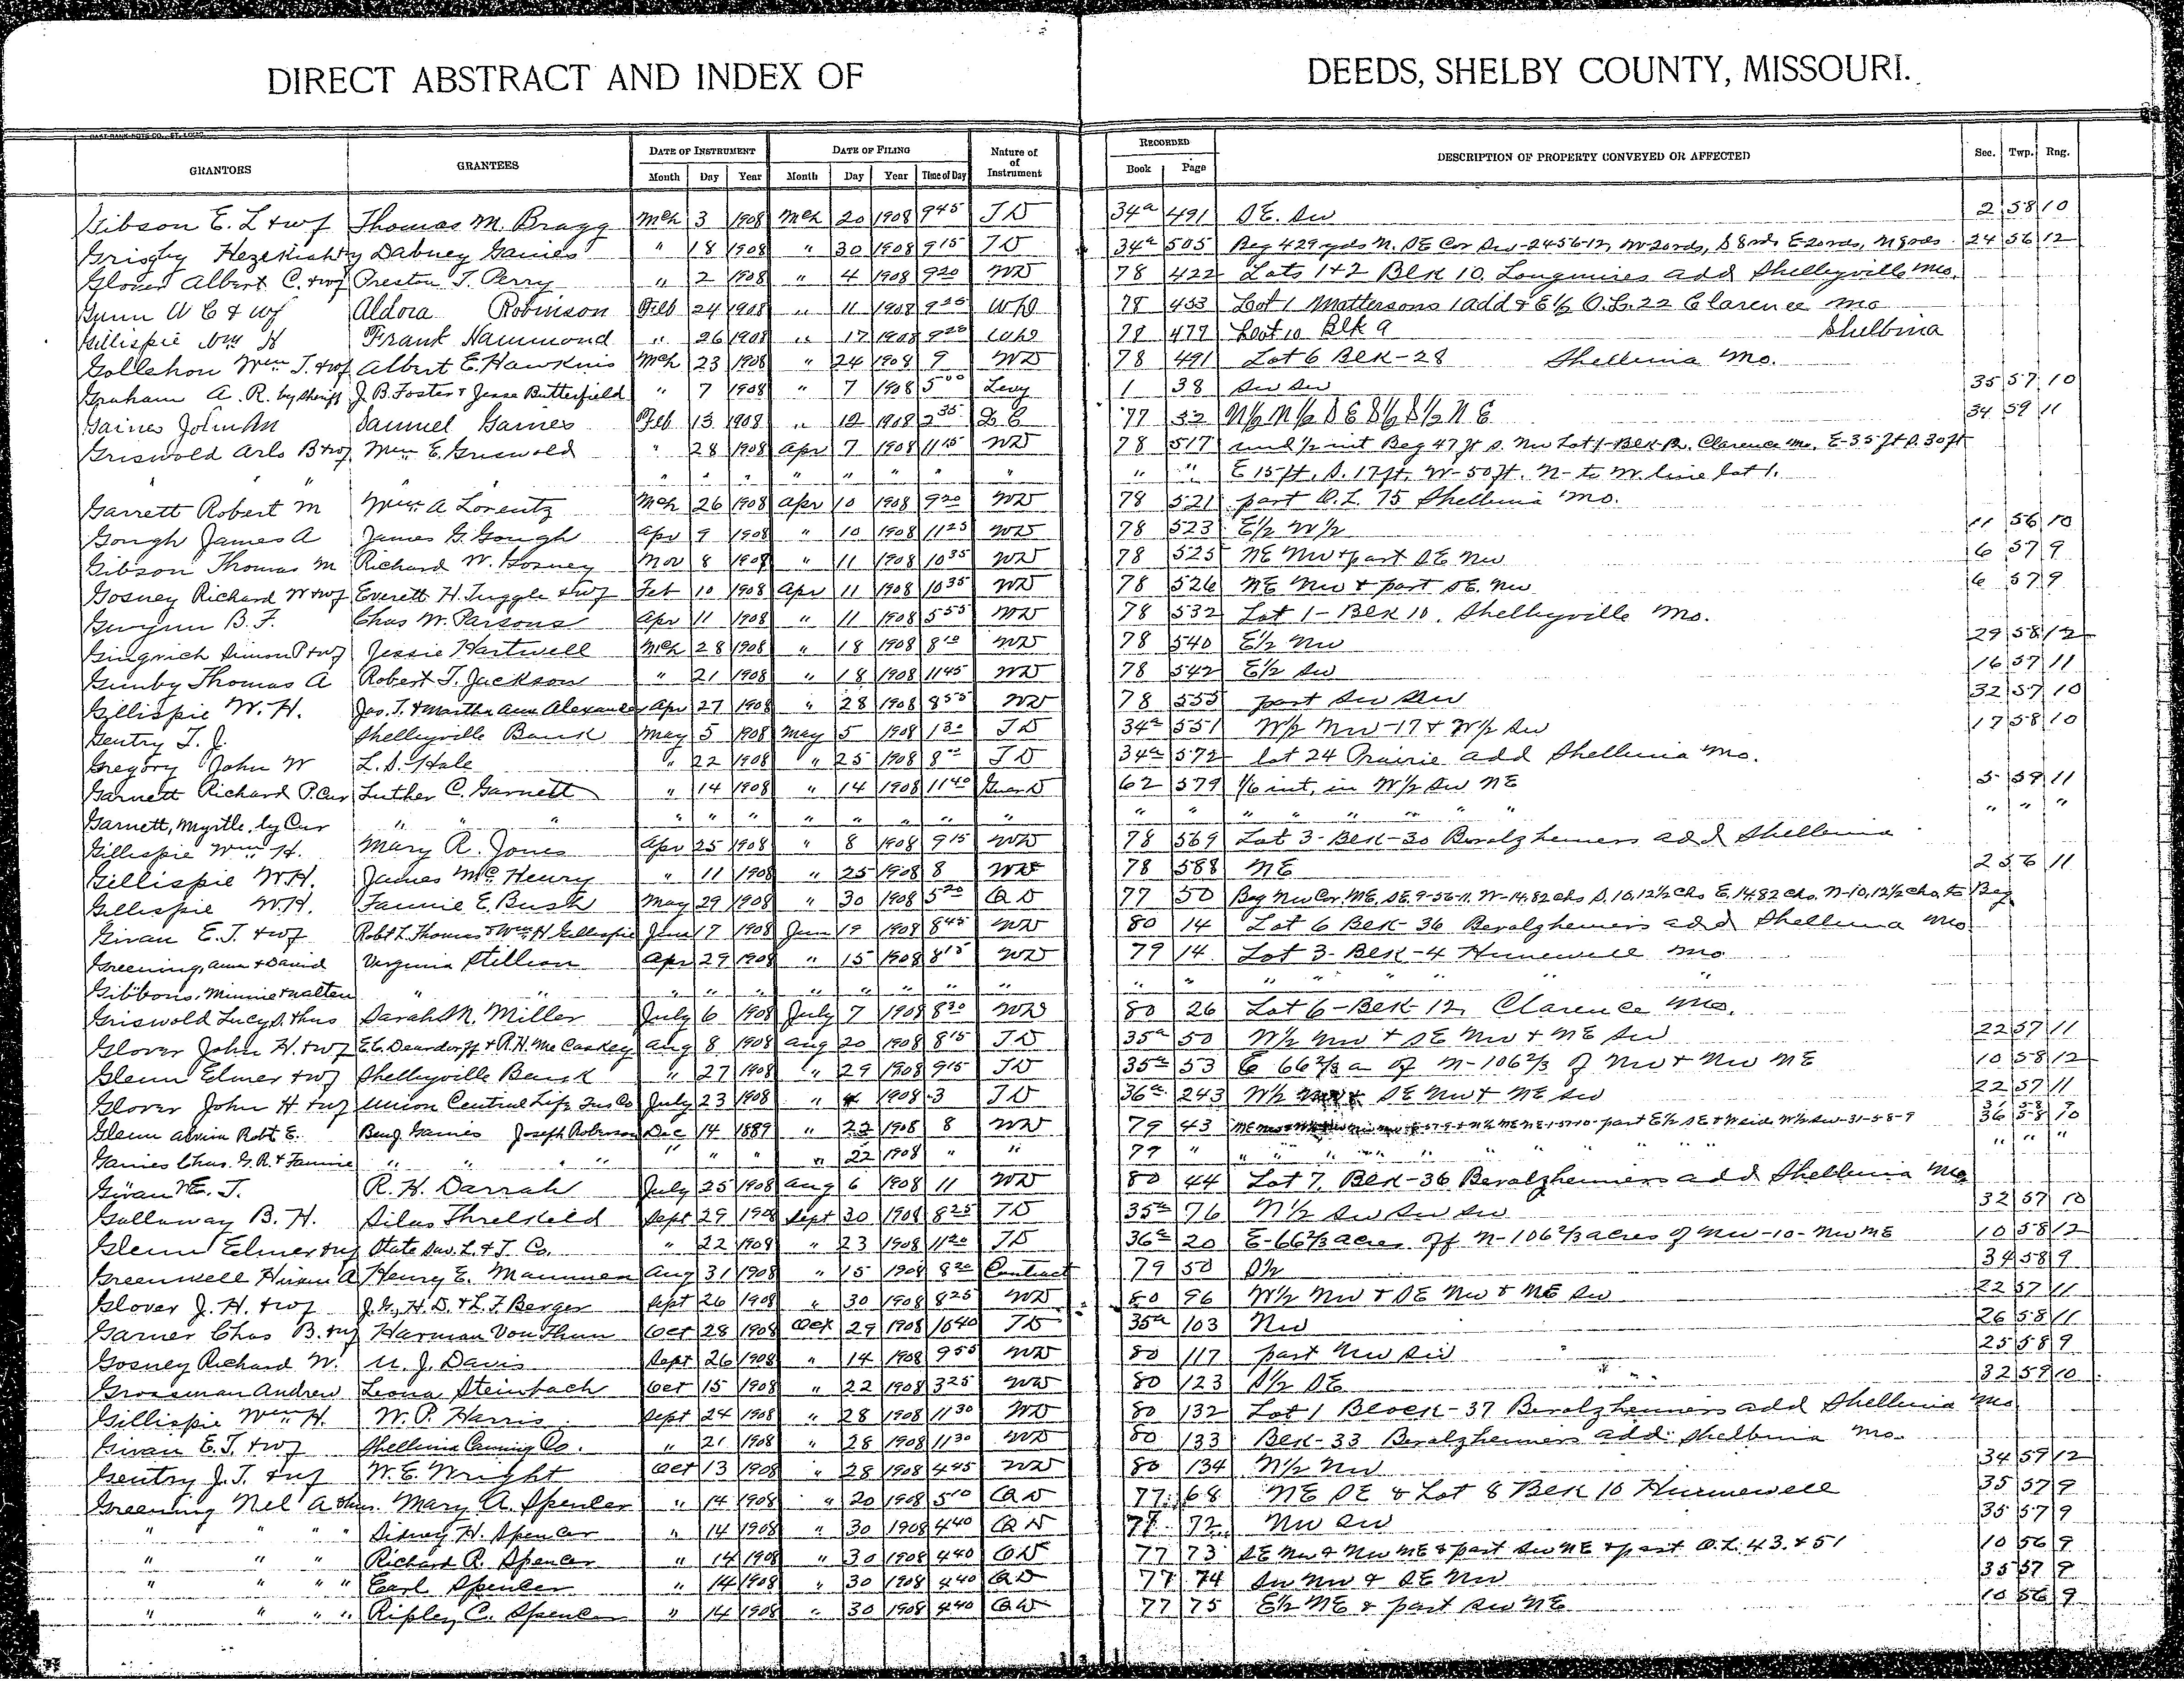 DIRECT ABSTRACT AND INDEX OF DEEDS, SHELBY COUNTY, MISSOURI.
GRANTORS GRANTEES DATE OF INSTRUMENT DATE OF FILING Nature of of Instrument RECORDED DESCRIPTION OF PROPERTY CONVEYED OR AFFECTED Sec. Twp. Rng.
Month Day Year Month Day Year Time of Day Book Page
Gibson E. L + wf Thomas M. Bragg Mch 3 1908 Mch 20 1908 9 45 T D 34a 491 S E. Sw 2 58 10
Grigby Hezekiah Dabney Gaines " 18 1908 " 30 1908 9 15 T D 34a 505 Beg 429 yds N. SE Cor Sw-24-56-12, W 20 rds, S 8 rds E 20 rds, N 8 rds 24 56 12
Glover Albert C. + wf Preston T. Perry " 2 1908 " 4 1908 9 20 WD 78 422 Lots 1+2 Blk 10 Longmires add Shelbyville Mo.
Gunn W C & wf Aldora Robinson Feb 24 1908 " 11 1908 9 25 WD 78 453 Lot 1 Mattersons 1 add + E 1/2 O.L. 22 Clarence Mo
Gillispie Wm H Frank Hammond " 26 1908 " 17 1908 9 20 WD 78 477 Lot 10 Blk 9 Shelbina
Gollehon Wm T. + wf Albert E. Hawkins Mch 23 1908 " 24 1908 9 WD 78 491 Lot 6 Blk-28 Shelbina Mo.
Graham A. R. by Sheriff J. B. Foster & Jesse Butterfield " 7 1908 " 7 1908 5 00 Levy 1 38 Sw Sw 35 57 10
Gaines John M Samuel Gaines Feb 13 1908 " 12 1908 2 35 77 32 N 1/2 N 1/2 S E S 1/2 S 1/2 N E 34 59 11
Griswold Arlo B + wf Wm E. Griswold " 28 1908 Apr 7 1908 11 15 WD 78 517 und 1/2 int Beg 47 ft S. Nw Lot 1-Blk-12. Clarence Mo. E-35 ft S. 30 ft
" " " " " " " " " " " " E 15 ft, S. 17 ft, W-50 ft. N- to W. line lot 1.
Garrett Robert M Wm A Lorentz Mch 26 1908 Apr 10 1908 9 20 WD 78 521 part O.L. 75 Shelbina Mo.
Gough James A James G. Gough Apr 9 1908 " 10 1908 11 25 WD 78 523 E 1/2 W 1/2 11 56 10
Gibson Thomas M Richard W. Gosney Nov 8 1907 " 11 1908 10 35 WD 78 525 NE Nw + part SE Nw 6 57 9
Gosney Richard W + wf Everett H. Tuggle + wf Feb 10 1908 Apr 11 1908 10 35 WD 78 526 NE Nw + part SE. Nw 6 57 9
Gwynn B. F. Chas W. Parsons Apr 11 1908 " 11 1908 5 55 WD 78 532 Lot 1-Blk 10. Shelbyville Mo.
Gingrich Simon P + wf Jessie Hartwell Mch 28 1908 " 18 1908 8 10 WD 78 540 E 1/2 Nw 29 58 12
Gunby Thomas A Robert T. Jackson " 21 1908 " 18 1908 11 45 WD 78 542 E 1/2 Sw 16 57 11
Gillispie W. H. Jas. T. & Martha Ann Alexander Apr 27 1908 " 28 1908 8 55 WD 78 555 part Sw Sw 32 57 10
Gentry T. J. Shelbyville Bank May 5 1908 May 5 1908 1 30 T D 34a 551 W 1/2 Nw-17 & W 1/2 Sw 17 58 10
Gregory John W L. S. Hale " 22 1908 " 25 1908 8 00 T D 34a 572 lot 24 Prairie add Shelbina Mo.
Garnett Richard P. Cur Luther C. Garnett " 14 1908 " 14 1908 11 40 Guar D 62 579 1/6 int, in W 1/2 Sw NE 5 59 11
Garnett, Myrtle, by Cur " " " " " " " " " " " " " " " " " " " "
Gillispie Wm H. Mary R. Jones Apr 25 1908 " 8 1908 9 15 WD 78 569 Lot 3-Blk-30 Beralzheimers add Shelbina
Gillispie W.H. James McHenry " 11 1908 " 25 1908 8 WD 78 588 NE 2 56 11
Gillispie W.H. Fannie E. Bush May 29 1908 " 30 1908 5 20 Q D 77 50 Beg Nw Cor. NE. SE. 9-56-11. W-14.82 chs S. 10.12 1/2 chs E. 14.82 chs. N-10.12 1/2 chs. to Beg
Givan E. T. + wf Robt L. Thomas & Wm H Gillispie June 17 1908 June 19 1908 8 45 WD 80 14 Lot 6 Blk-36 Beralzheimers add Shelbina Mo
Greening, Ann + David Verginia Stillion Apr 29 1908 " 15 1908 8 15 WD 79 14 Lot 3-Blk-4 Hunnewell Mo
Gibbons, Minnie + Walten " " " " " " " " " " " " " " " " "
Griswold Lucy S. + hus Sarah M. Miller July 6 1908 July 7 1908 8 30 WD 80 26 Lot 6-Blk-12, Clarence Mo.
Glover John H. + wf E. C. Deardorff & R. H. McCaskey Aug 8 1908 Aug 20 1908 8 15 T D 35a 50 W 1/2 Nw + SE Nw + NE Sw 22 57 11
Glenn Elmer + wf Shelbyville Bank " 27 1908 " 29 1908 9 15 T D 35a 53 E 66 2/3 a of N-106 2/3 of Nw + Nw NE 10 58 12
Glover John H + wf Union Central Life Ins Co July 23 1908 " 4 1908 3 T D 36a 243 W 1/2 Nw & SE Nw + NE Sw 22 57 11
Glenn Robt E. Benj. Gaines Joseph Robinson Dec 14 1889 " 22 1908 8 WD 79 43 part E 1/2 SE W 1/2 Sw-31-58-9 36 58 10
Gaines Chas. G. R. & Fannie " " " " " " " " 22 1908 " " 79 " " " " " " " " " " "
Givan E. T. R. H. Darrah July 25 1908 Aug 6 1908 11 WD 80 44 Lot 7, Blk-36 Beralzheimers add Shelbina Mo.
Gallaway B. H. Silas Threlkeld Sept 29 1908 Sept 30 1908 8 25 T D 35a 76 N 1/2 Sw Sw Sw 32 57 10
Glenn Elmer + wf State Sav. L. & T. Co. " 22 1908 " 23 1908 11 20 T D 36a 20 E-66 2/3 acres off N-106 2/3 acres of Nw-10-Nw NE 10 58 12
Greenwell Hiram A Henry E. Maunnen Aug 31 1908 " 15 1908 8 20 Contract 79 50 S 1/2 34 58 9
Glover J. H. + wf J. G., H. D. & L. F. Berger Sept 26 1908 " 30 1908 8 25 WD 80 96 W 1/2 Nw & SE Nw & NE Sw 22 57 11
Garner Chas B. + wf Harman Von Thun Oct 28 1908 Oct 29 1908 10 40 T D 35a 103 Nw 26 58 11
Gosney Richard W. U. J. Davis Sept 26 1908 " 14 1908 9 55 WD 80 117 part Nw Sw 25 58 9
Grossman Andrew Leona Steinbach Oct 15 1908 " 22 1908 3 25 WD 80 123 S 1/2 SE 32 59 10
Gillispie Wm H. W. P. Harris Sept 24 1908 " 28 1908 11 30 WD 80 132 Lot 1 Block-37 Beralzheimers add Shelbina Mo
Givan E. T. + wf Shelbina Canning Co. " 21 1908 " 28 1908 11 30 WD 80 133 Blk-33 Beralzheimers add. Shelbina Mo.
Gentry J. T. + wf W. E. Wright Oct 13 1908 " 28 1908 4 45 WD 80 134 N 1/2 Nw 34 59 12
Greening Nel A + hus. Mary A. Spencer " 14 1908 " 20 1908 5 10 Q D 77 68 NE SE & Lot 8 Blk 10 Hunnewell 35 57 9
" " " " Sidney H. Spencer " 14 1908 " 30 1908 4 40 Q D 77 72 Nw Sw 35 57 9
" " " Richard R. Spencer " 14 1908 " 30 1908 4 40 Q D 77 73 SE Nw & Nw NE & part Sw NE & part O.L. 43. & 51 10 56 9
" " " " Earl Spencer " 14 1908 " 30 1908 4 40 Q D 77 74 Sw Nw & SE Nw 35 57 9
" " " " Ripley C. Spencer " 14 1908 " 30 1908 4 40 Q D 77 75 E 1/2 NE & part Sw NE 10 56 9